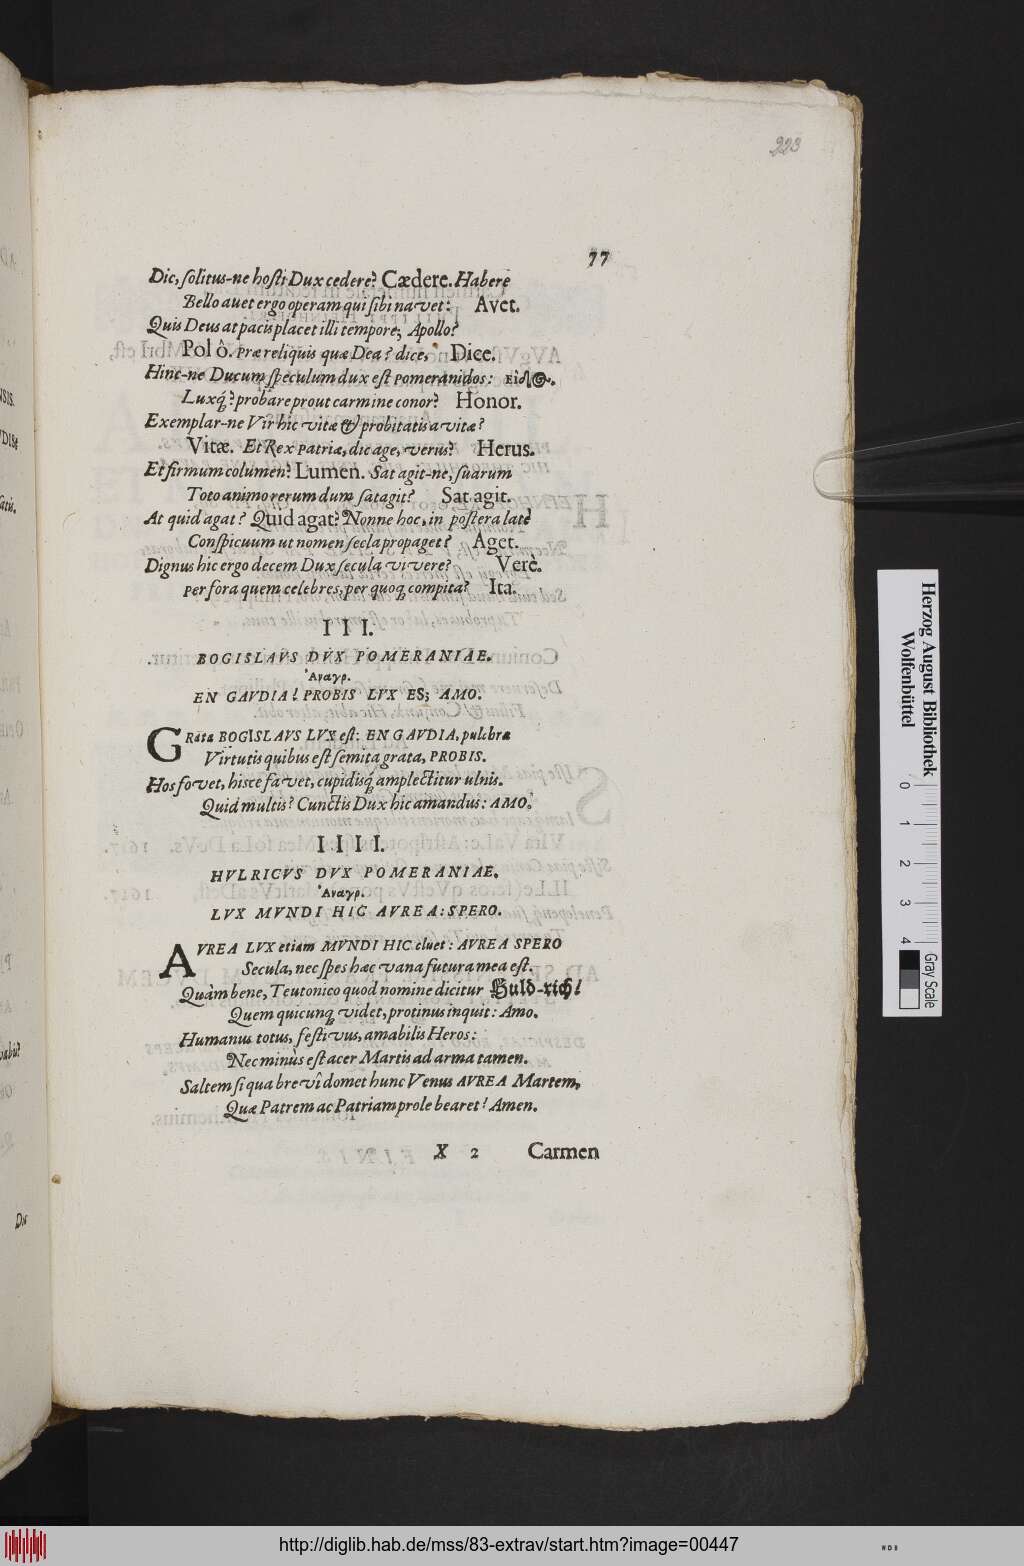 223
77
Dic, ſolitus-ne hoſti Dux cedere? Cædere. Habere
Bello avet ergo operam qui ſibi navet: Avet.
Quis Deus at pacis placet illi tempore; Apollo?
Pol ô. Præ reliquis quæ Dea? dice. Dice.
Hinc-ne Ducum ſpeculum dux eſt Pomeranidos:
Luxq́;? probare prout carmine conor? Honor.
Exemplar-ne Vir hic vitæ & probitatis avitæ?
Vitæ. Et Rex Patriæ, dic age, verus? Herus.
Et firmum columen? Lumen. Sat agit-ne, ſuarum
Toto animo rerum dum ſatagit? Sat agit.
At quid agat? Quid agat? Nonne hoc, in poſtera latè
Conſpicuum ut nomen ſecla propaget? Aget.
Dignus hic ergo decem Dux ſecula vivere? Verè.
Per fora quem celebres, per quoq; compita? Ita.
III.
BOGISLAVS DVX POMERANIAE.
Ἀναγρ.
EN GAVDIA! PROBIS LVX ES; AMO.
GRata BOGISLAVS LVX eſt: EN GAVDIA, pulchræ
Virtutis quibus eſt ſemita grata, PROBIS.
Hos fovet, hisce favet, cupidisq́; amplectitur ulnis.
Quid multis? Cunctis Dux hic amandus: AMO.
IIII.
HVLRICVS DVX POMERANIAE.
Ἀναγρ.
LVX MVNDI HIC AVREA: SPERO.
AVREA LVX etiam MVNDI HIC cluet: AVREA SPERO
Secula, nec ſpes hæc vana futura mea eſt.
Quàm bene, Teutonico quod nomine dicitur Huld-rich!
Quem quicunq; videt, protinus inquit: Amo.
Humanus totus, feſtivus, amabilis Heros:
Nec minùs eſt acer Martis ad arma tamen.
Saltem ſi qua brevî domet hunc Venus AVREA Martem,
Quæ Patrem ac Patriam prole bearet! Amen.
X 2 Carmen
Herzog August Bibliothek
Wolfenbüttel
0 1 2 3 4
Gray Scale
http://diglib.hab.de/mss/83-extrav/start.htm?image=00447